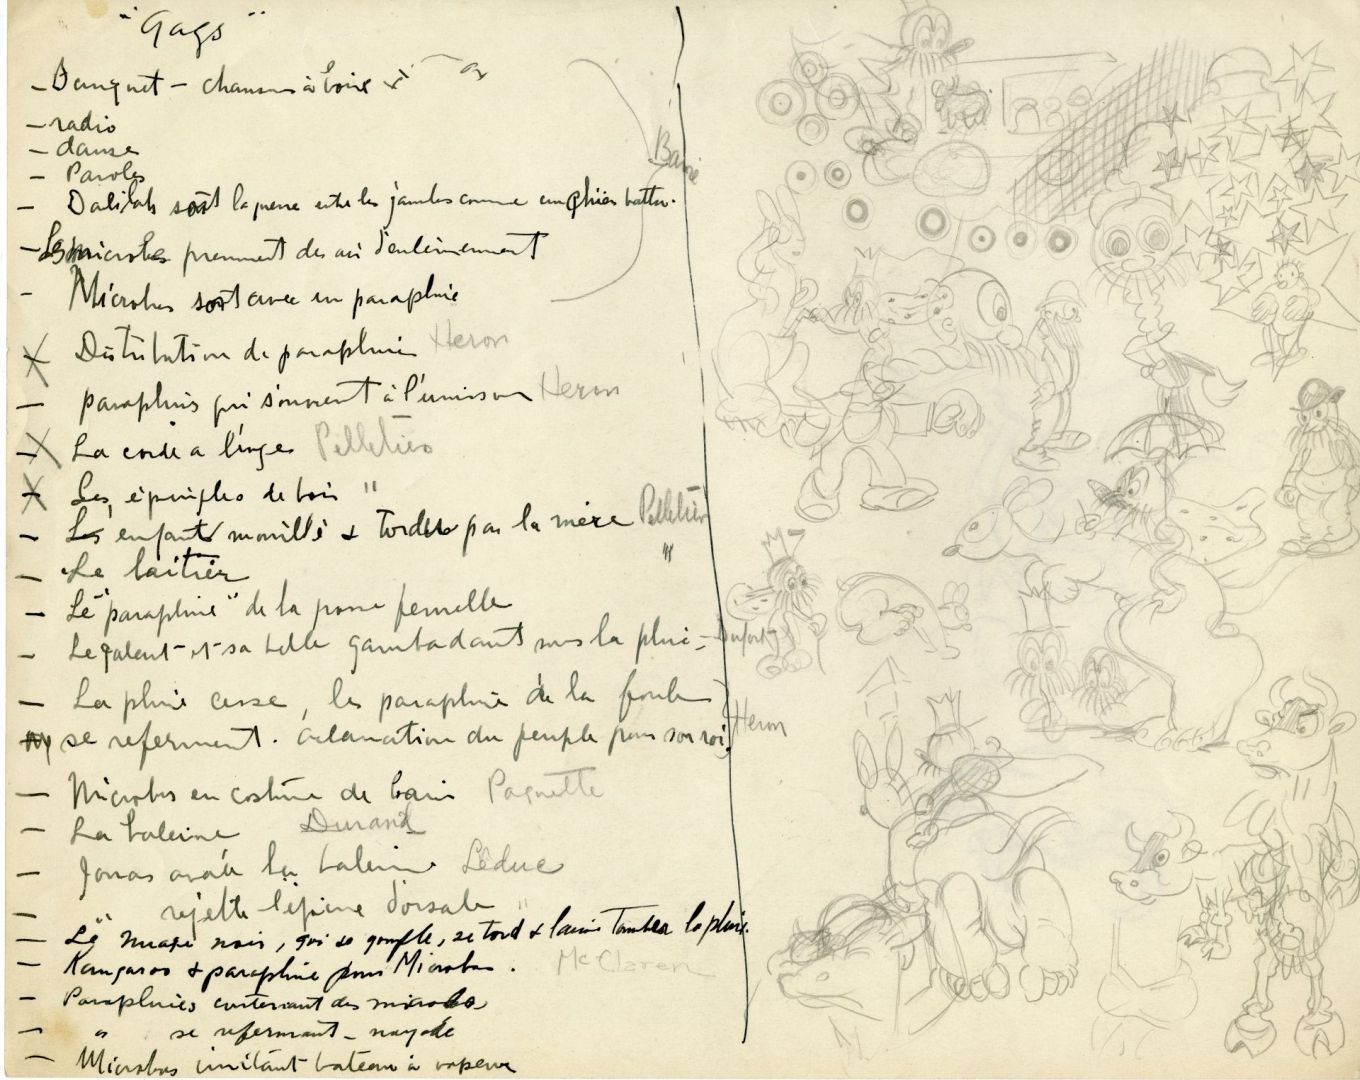 "Gags"
- Banquet - chansons à boire
- radio
- danse
- Paroles
- Dalilah sort la queue entre les jambes comme un chien battu.
- Les microbes prennent des airs d'enterrement
- Microbus sort avec un parapluie
Barré
- Distribution de parapluies Heron
- parapluies qui s'ouvrent à l'unisson Heron
- La corde a linge Pelletier
- Les épingles de bois "
- Les enfants mouillés & tordus par la mère Pelletier
- Le laitier "
- Le "parapluie" de la femelle
- Le galant et sa belle gambadant sous la pluie - Dufort
- La pluie cesse, les parapluies de la foule
se referment. Acclamation du peuple pour son roi. Heron
- Microbus en costume de bain Paquette
- La baleine Durand
- Jonas avale la baleine Léduc
- rejette l'épine dorsale "
- Le nuage noir, qui se gonfle, se tord & laisse tomber la pluie.
- Kangaroo & parapluie pour Microbus. McClaren
- Parapluies contenant des microbes
- " se refermant - noyade
- Microbus imitant bateau à vapeur